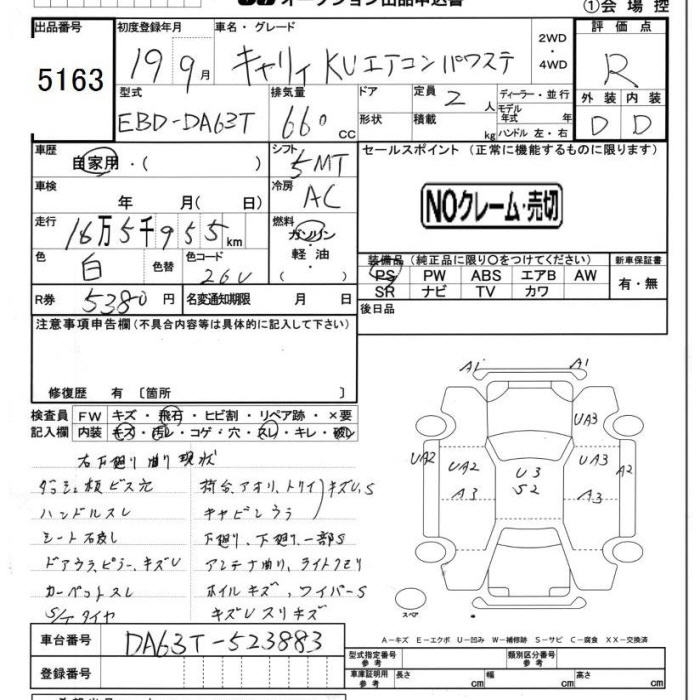 オークション出品申込書 ①会場控
出品番号 初度登録年月 車名・グレード 2WD・4WD 評価点
5163 19 9月 キャリィ KUエアコンパワステ R
型式 排気量 ドア 定員 2人 ディーラー・並行 外装 内装
EBD-DA63T 660cc 形状 積載 kg モデル年式 年 ハンドル 左・右 D D
車歴 自家用・( ) シフト 5MT セールスポイント (正常に機能するものに限ります)
車検 年 月( 日) 冷房 AC NOクレーム・売切
走行 16万5千955km 燃料 ガソリン・軽油
色 白 色替 色コード 26U 装備品 (純正品に限り○をつけてください) 新車保証書
PS PW ABS エアB AW 有・無
SR ナビ TV カワ
R券 5380円 名変通知期限 月 日 後日品
注意事項申告欄 (不具合内容等は具体的に記入して下さい)
修復歴 有 [箇所 ]
検査員 FW キズ・飛石・ヒビ割・リペア跡・×要
記入欄 内装 キズ・汚レ・コゲ・穴・スレ・キレ・破レ
右下廻り曲り現状
ダッシュ板ビス穴 荷台、アオリ、トリイ)キズU、S
ハンドルスレ キャビンウラ
シート右戻し 下廻り、下廻り一部S
ドアウラ、ピラーキズU アンテナ曲り、ライトクモリ
カーペットスレ ホイルキズ、ワイパーS
S/Tタイヤ キズUスリキズ
A1 A1
UA3
UA2 UA2 U3 UA3 A2
A3 S2 A3
スペア
A-キズ E-エクボ U-凹み W-補修跡 S-サビ C-腐食 XX-交換済
車台番号 DA63T-523883 型式指定番号 参考 類別区分番号 参考
登録番号 車庫証明用 参考 長さ cm 幅 cm 高さ cm